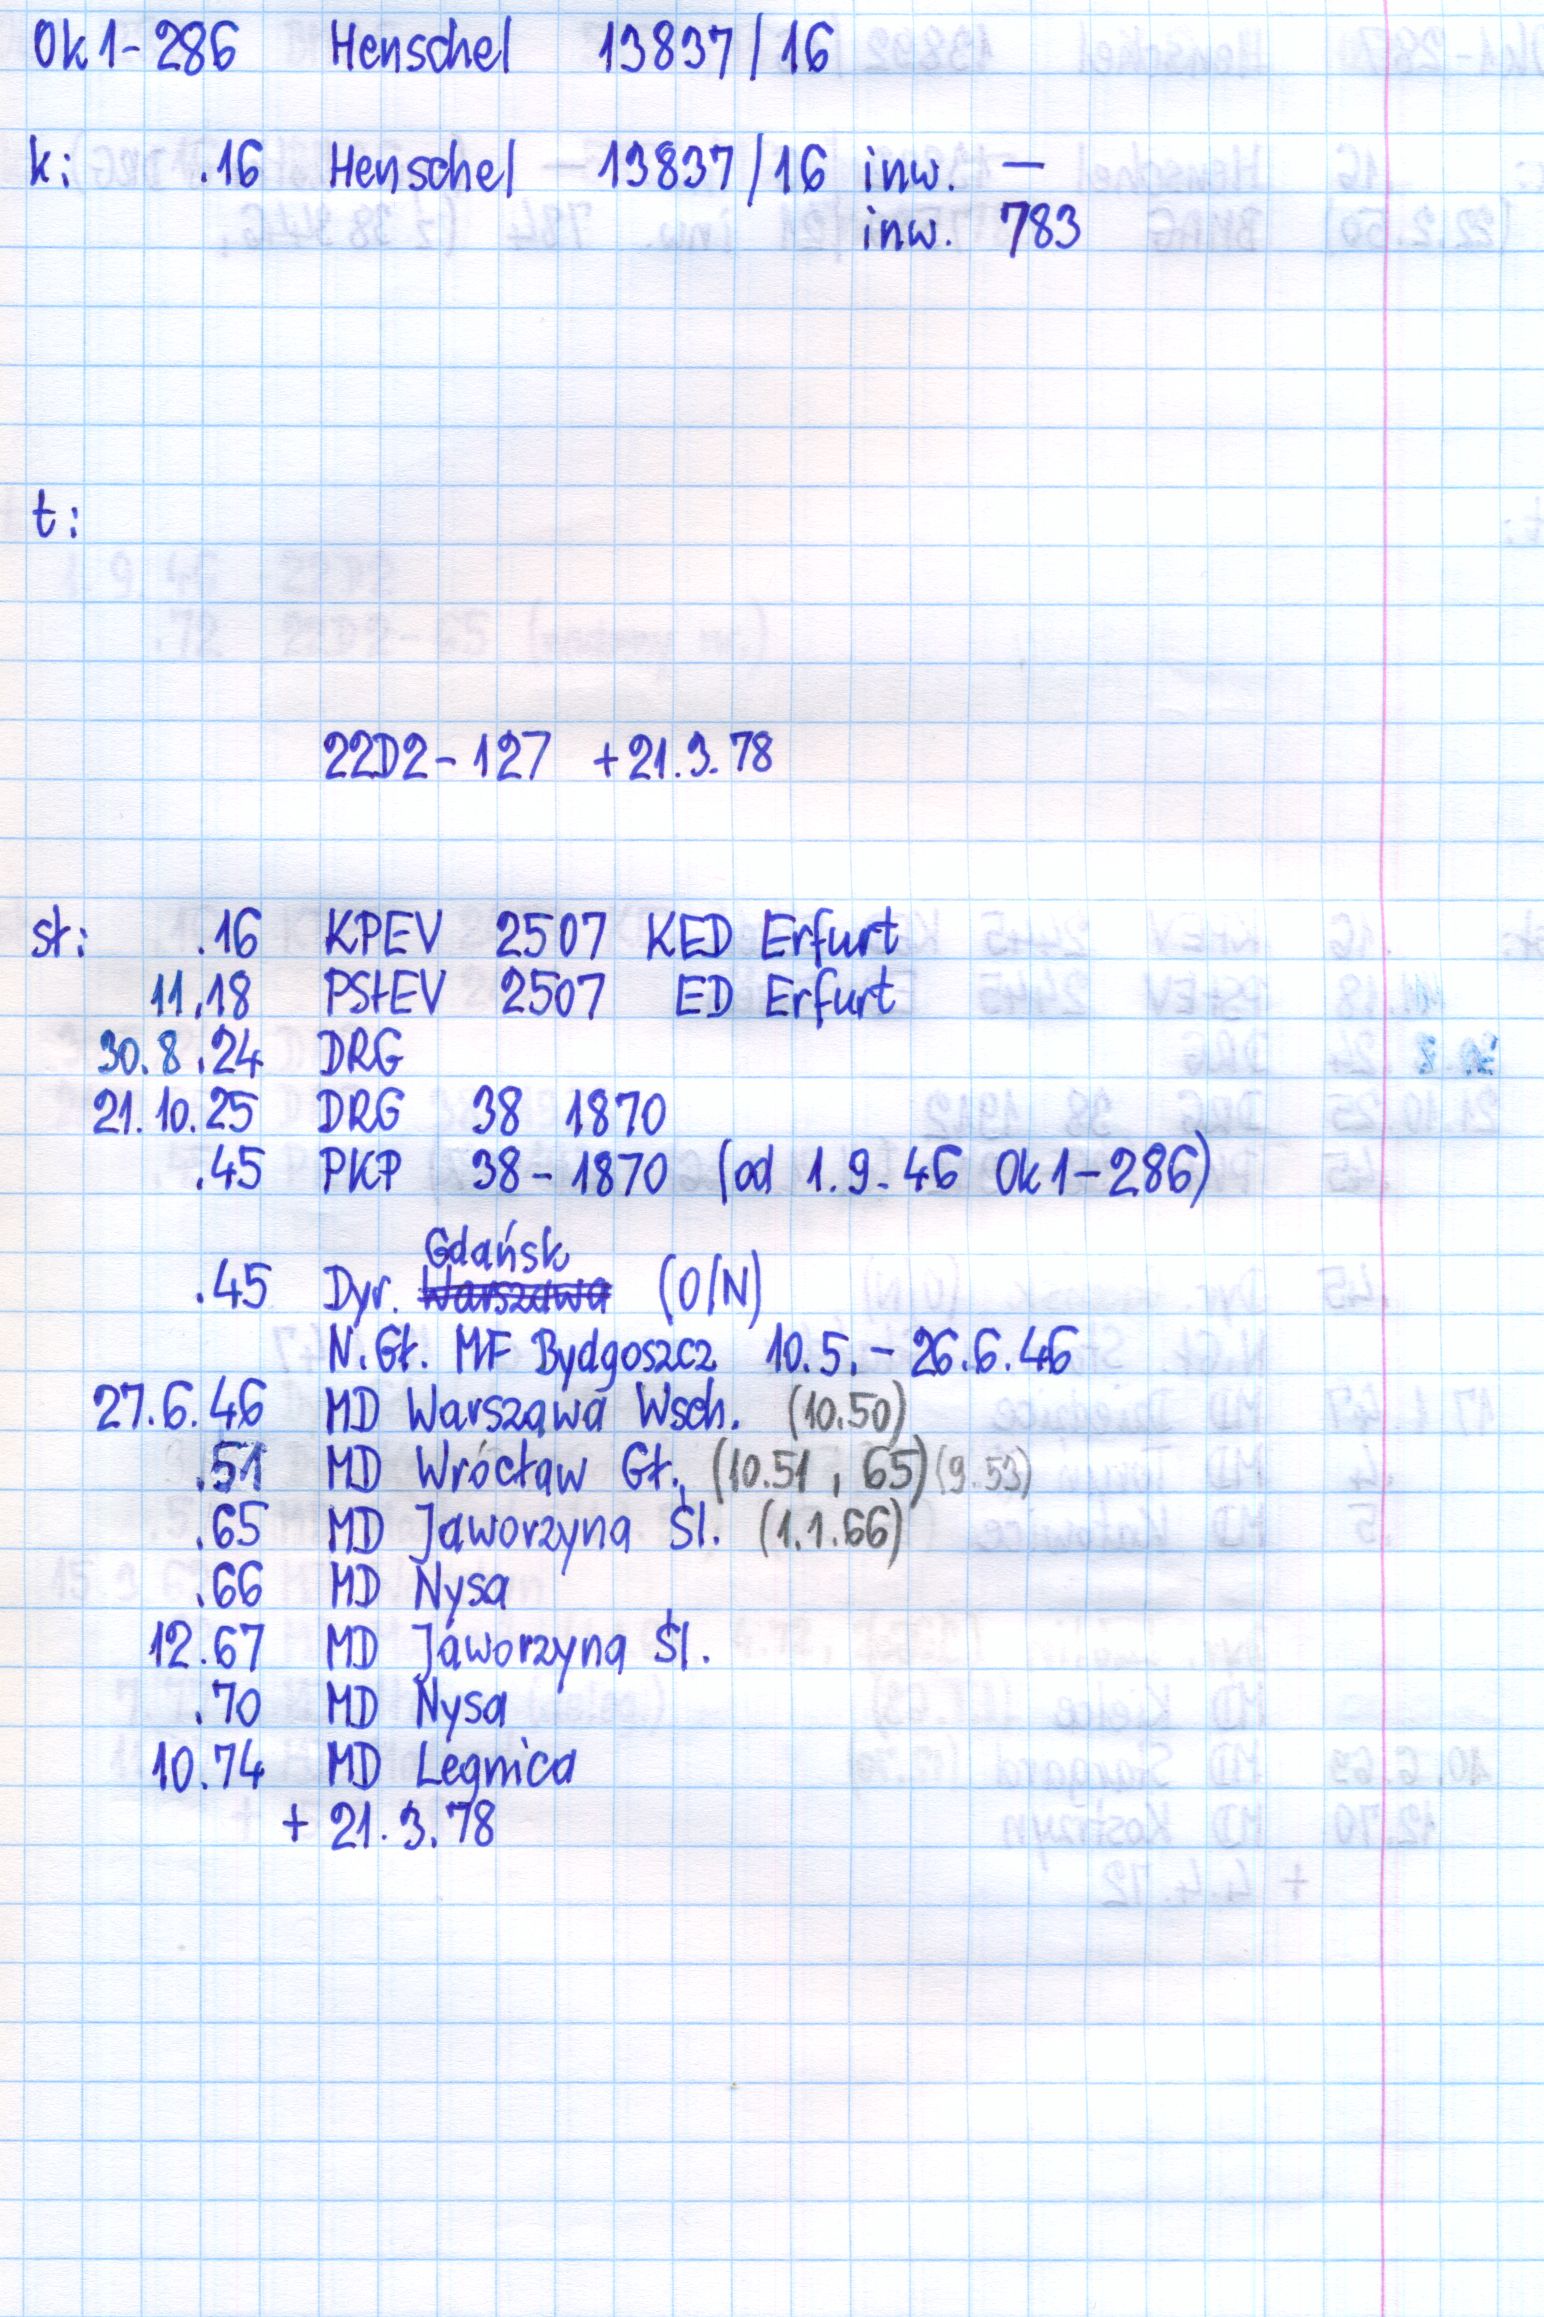 Ok1-286 Henschel 13837/16
k: .16 Henschel 13837/16 inw. —
inw. 783
t:
22D2-127 +21.3.78
st: .16 KPEV 2507 KED Erfurt
11.18 PStEV 2507 ED Erfurt
30.8.24 DRG
21.10.25 DRG 38 1870
.45 PKP 38-1870 (od 1.9.46 Ok1-286)
Gdańsk
.45 Dyr. Warszawa (O/N)
N.Gł. MF Bydgoszcz 10.5.-26.6.46
27.6.46 MD Warszawa Wsch. (10.50)
.51 MD Wrocław Gł. (10.51, 65) (9.53)
.65 MD Jaworzyna Śl. (1.1.66)
.66 MD Nysa
12.67 MD Jaworzyna Śl.
.70 MD Nysa
10.74 MD Legnica
+ 21.3.78